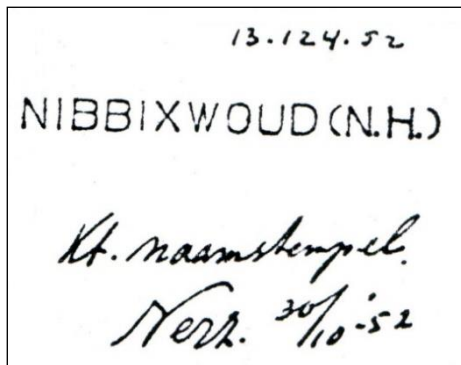 13.124.52
NIBBIXWOUD (N.H.)
Kt. naamstempel.
Verz. 30/10-52